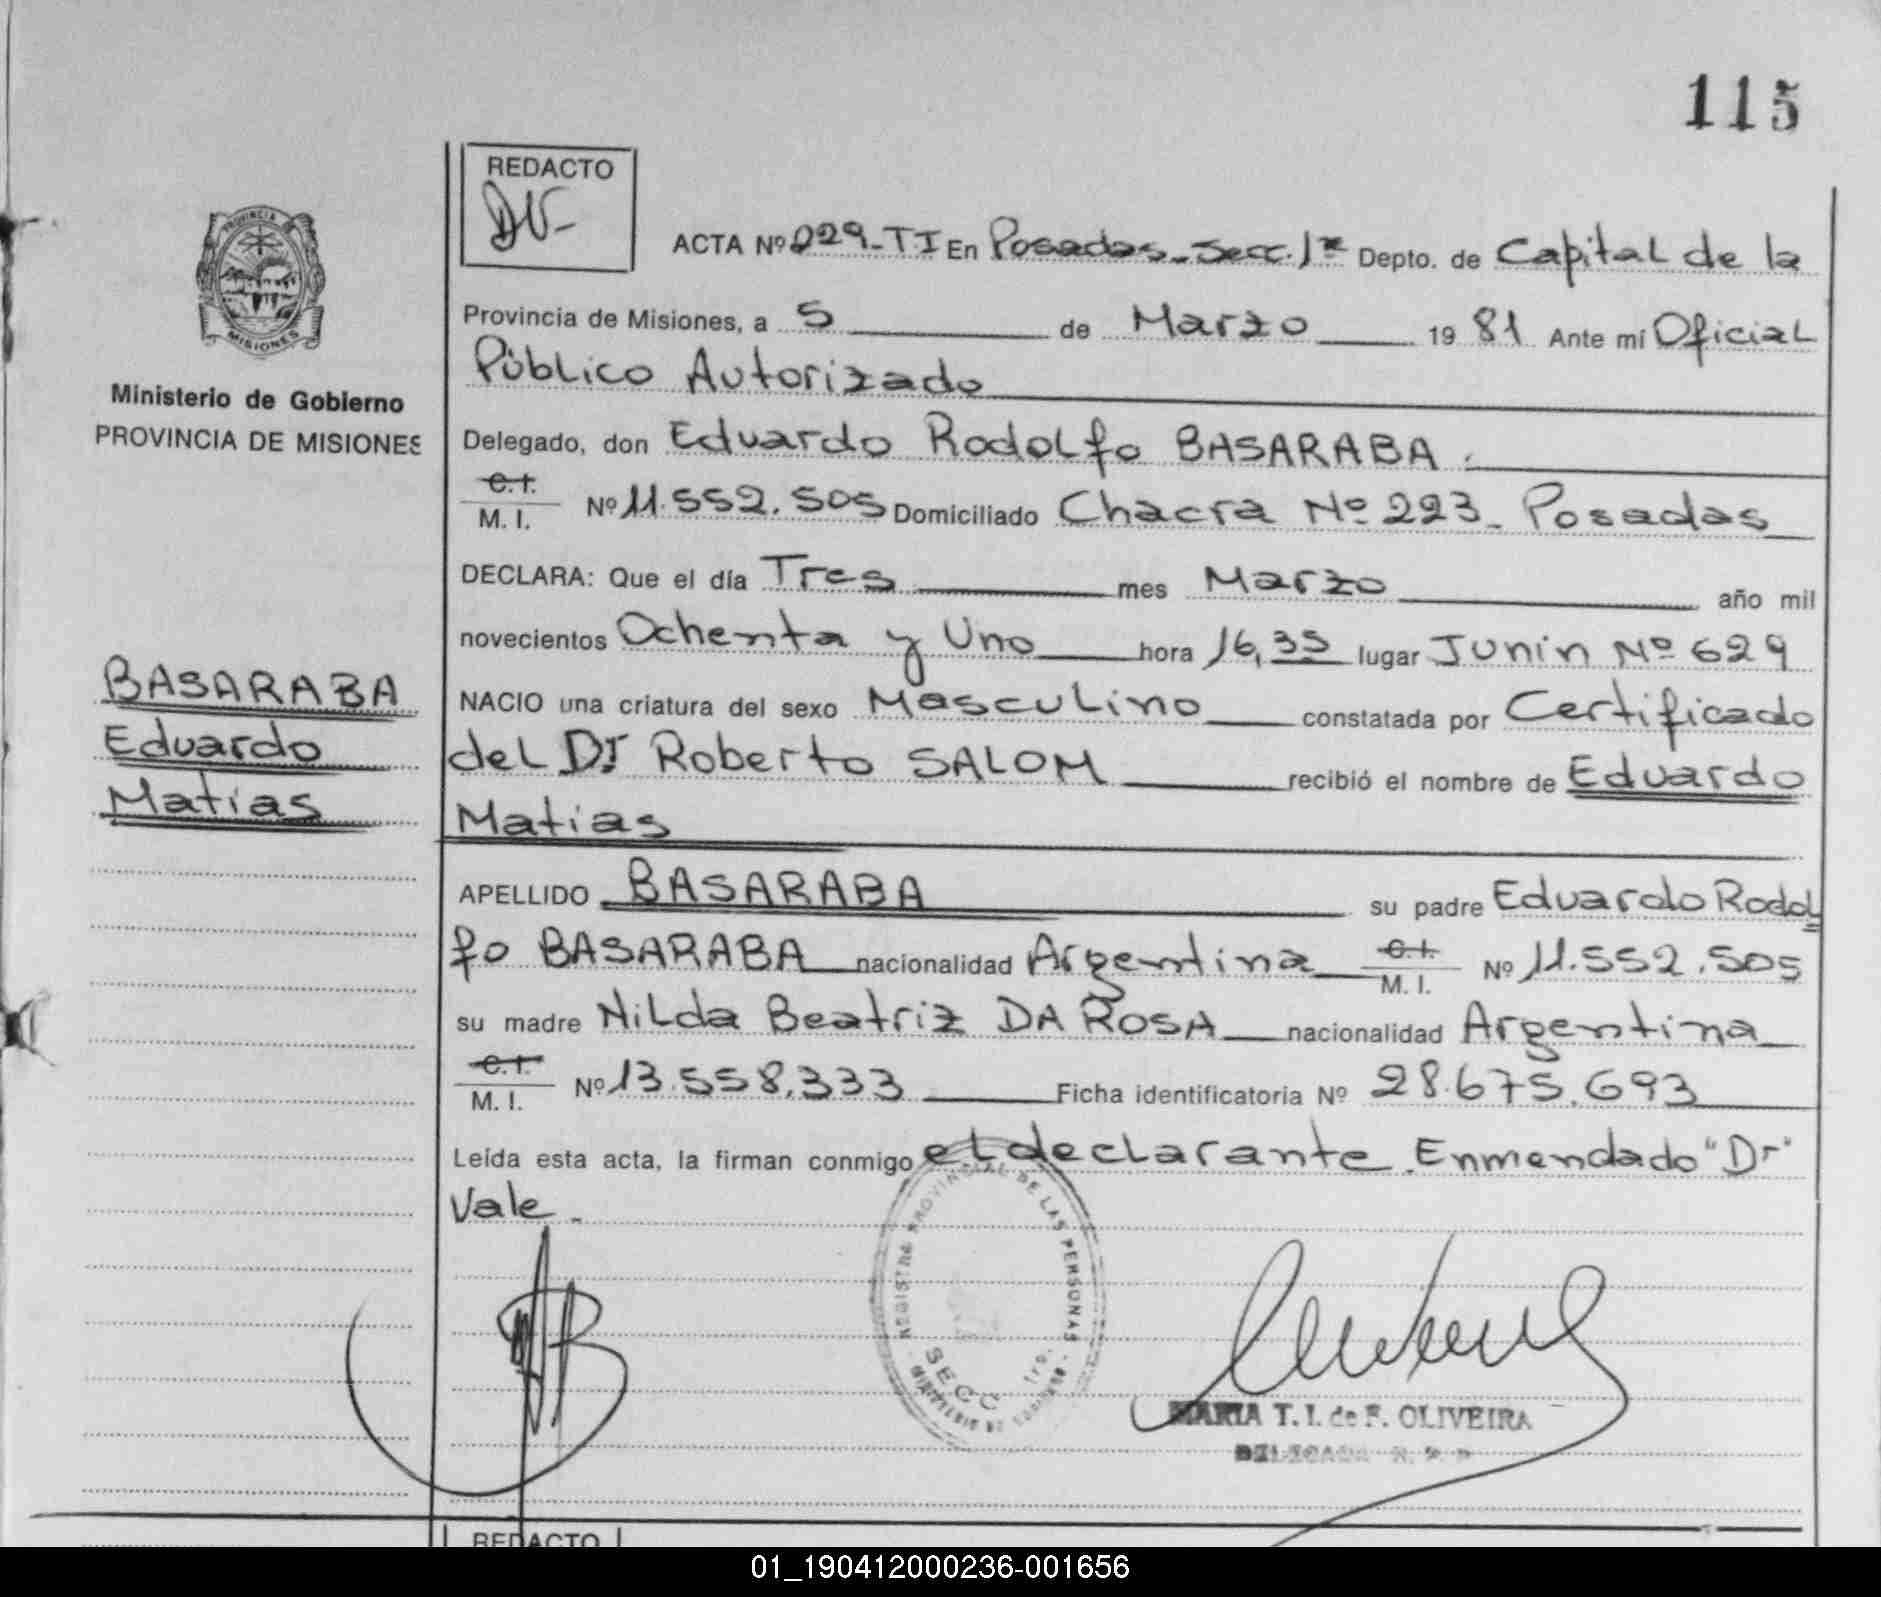 115
REDACTO
DV-
ACTA Nº 029-TI En Posadas-Secc. 1ª Depto. de Capital de la
Provincia de Misiones, a 5 de Marzo 1981 Ante mí Oficial
Público Autorizado
Delegado, don Eduardo Rodolfo BASARABA.
C.I.
M. I. Nº 11.552.505 Domiciliado Chacra Nº 223- Posadas
DECLARA: Que el día Tres mes Marzo año mil
novecientos Ochenta y Uno hora 16,35 lugar Junin Nº 629
NACIO una criatura del sexo Masculino constatada por Certificado
del Dr Roberto SALOM recibió el nombre de Eduardo
Matias
APELLIDO BASARABA su padre Eduardo Rodol
fo BASARABA nacionalidad Argentina C.I. M. I. Nº 11.552.505
su madre Nilda Beatriz DA ROSA nacionalidad Argentina
C.I.
M. I. Nº 13.558.333 Ficha identificatoria Nº 28.675.693
Leída esta acta, la firman conmigo el declarante. Enmendado "Dr"
Vale.-
PROVINCIA
MISIONES
Ministerio de Gobierno
PROVINCIA DE MISIONES
BASARABA
Eduardo
Matias
REGISTRO PROVINCIAL DE LAS PERSONAS
SECC 1ro.
MINISTERIO DE GOBIERNO
MARIA T. I. de F. OLIVEIRA
DELEGADA R. P. P.
REDACTO
01_190412000236-001656